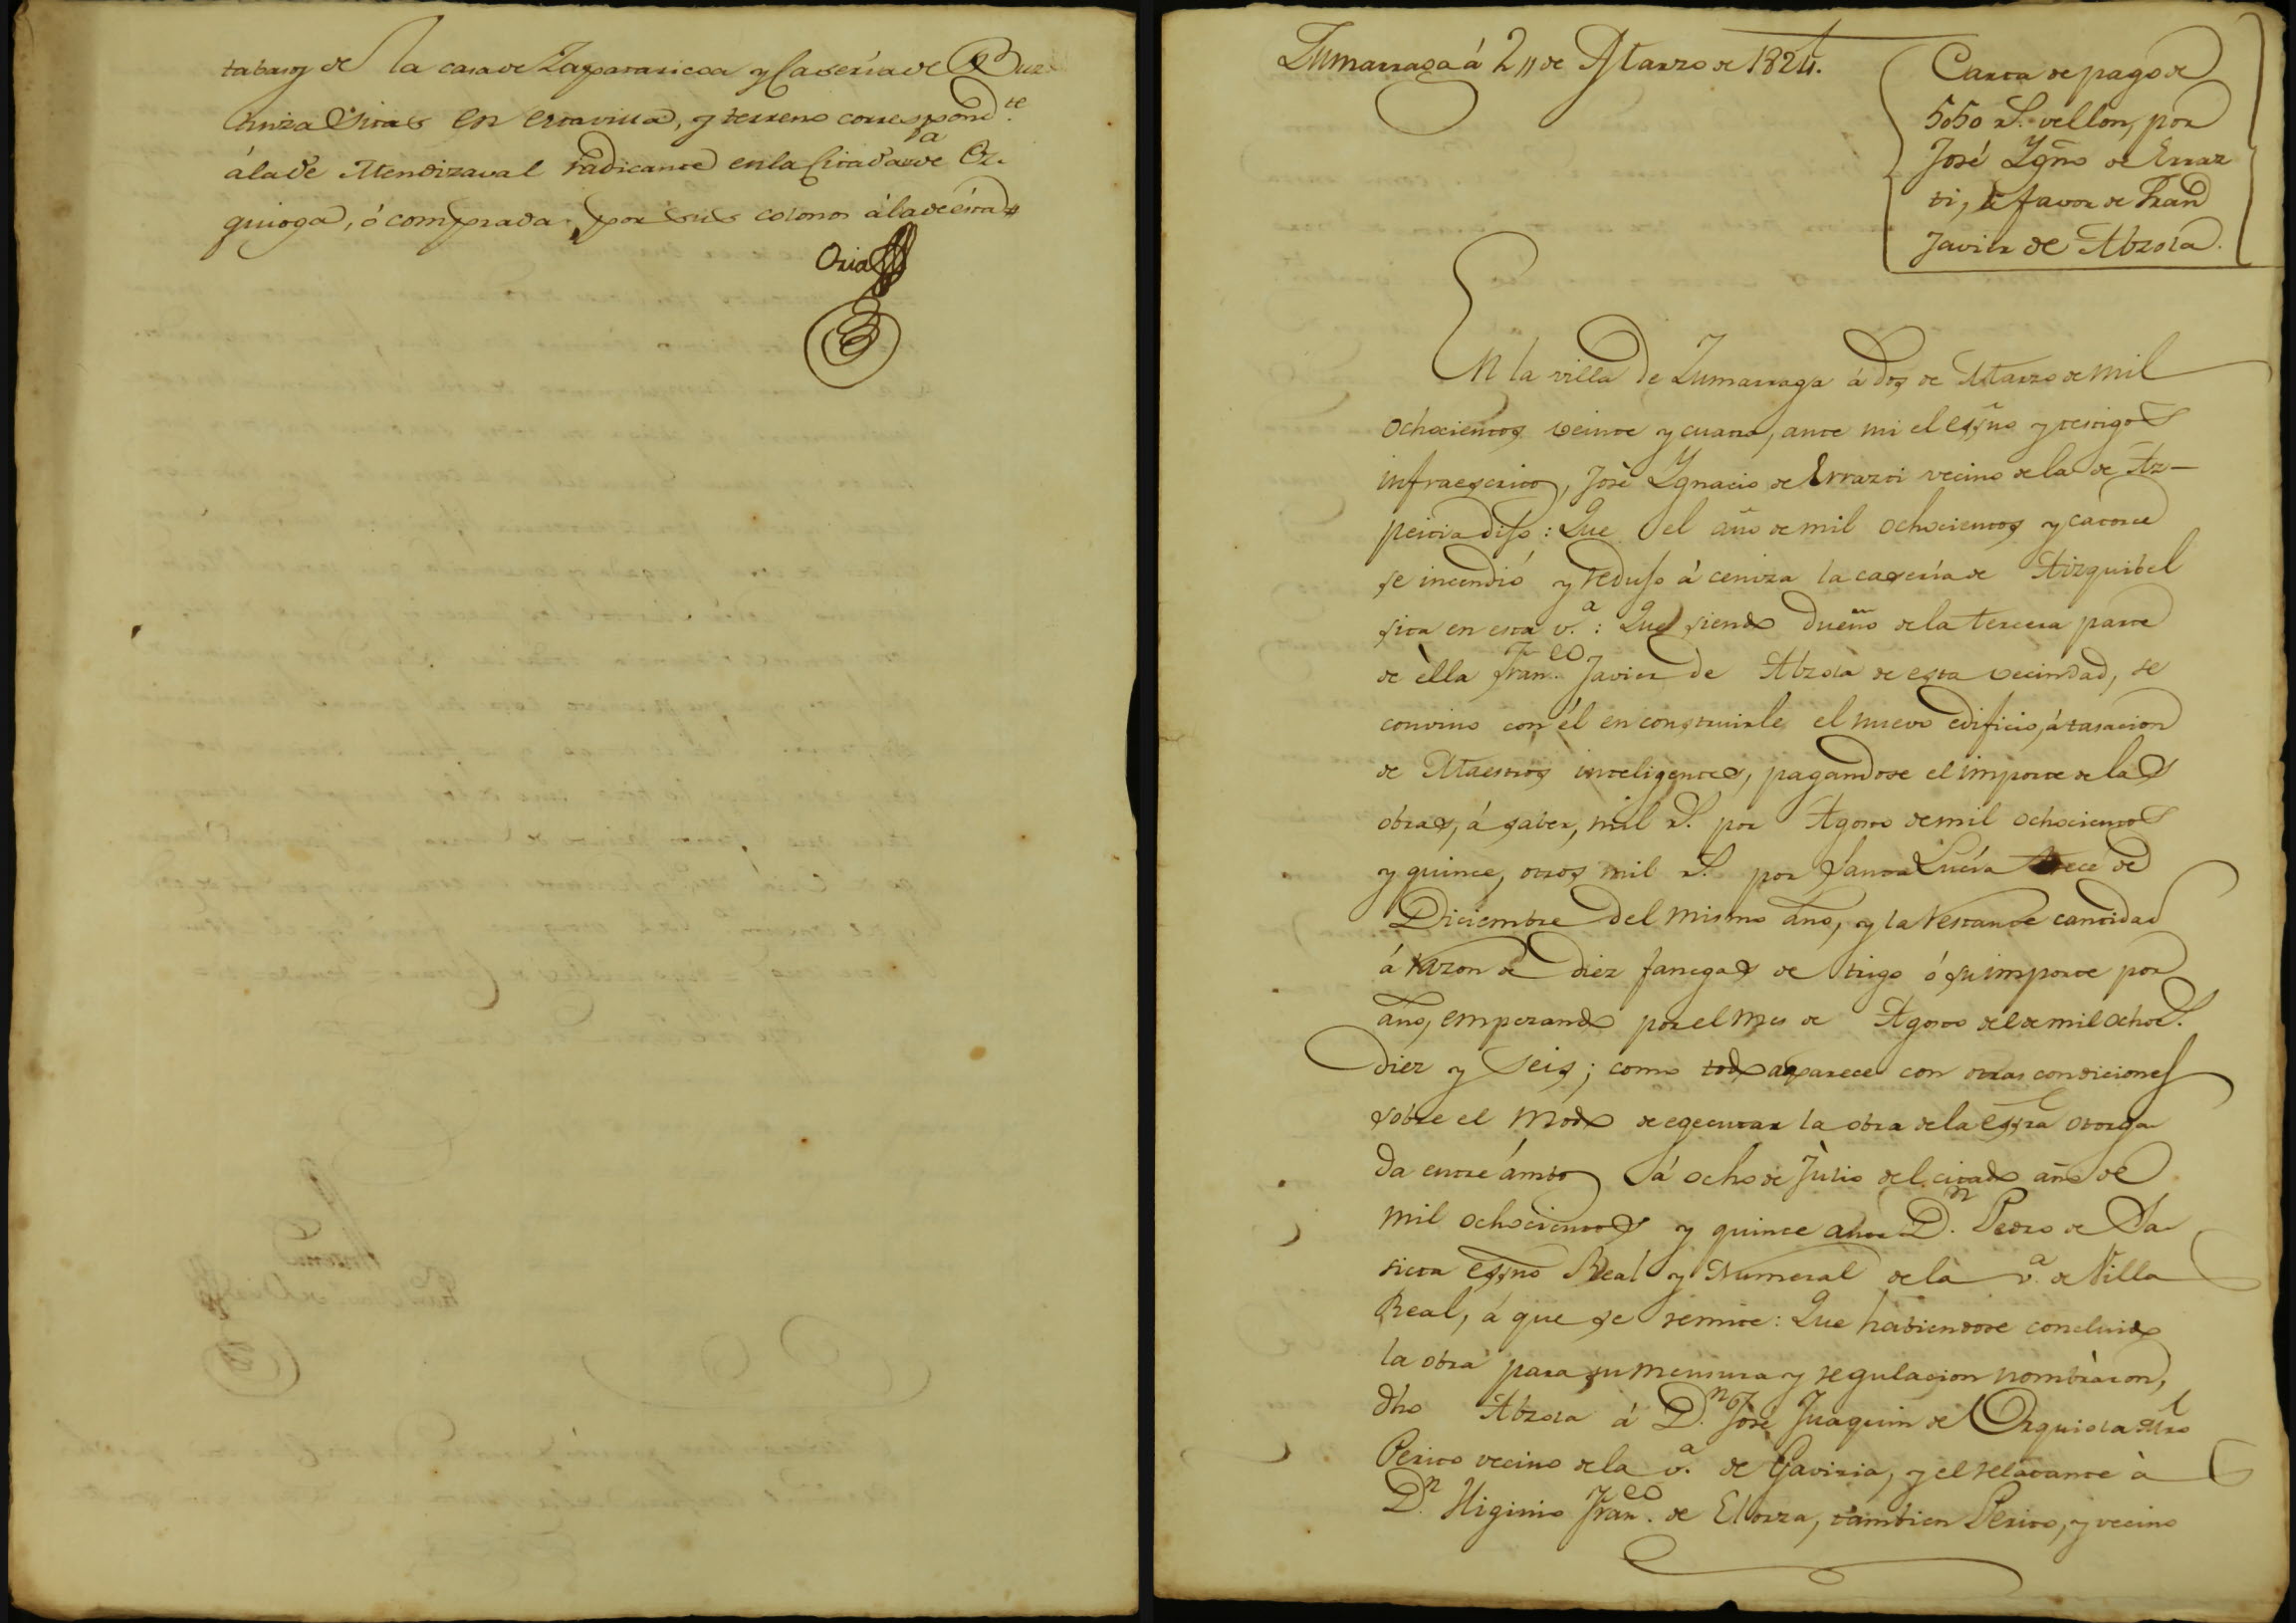 tabarq de la casa de Zapararicoa y Caseria de Buz-
tinza sitas en esta villa, y terreno correspond.te
á la de Mendizaval radicante en la Citada v.a de Oz.
quioga, ó comprada por sus colonos á la de ésta
Oria
Zumarraga á 2 de Marzo de 1824.
Carta de pago de
5050 r.s vellon, por
José Ygno de Erraz
ti, á favor de Fran
Javier de Abzola.
En la villa de Zumarraga á dos de Marzo de mil
ochocientos veinte y cuatro, ante mi el essno y testigos
infraescritos, José Ygnacio de Errazti vecino de la de Az-
peitia dijo: Que el año de mil ochocientos y catorce
se incendió y redujo á ceniza la caseria de Aizquibel
sita en esta v.a: Que siendo dueño de la tercera parte
de èlla Fran.co Javier de Abzola de esta vecindad, se
convino con él en construirle el nuevo edificio, á tasacion
de Maestros inteligentes, pagandose el importe de las
obras, á saber, mil r.s por Agosto de mil ochocientos
y quince, otros mil r.s por Santa Lucía trece de
Diciembre del mismo año, y la restante cantidad
á razon de diez fanegas de trigo ó su importe por
año, empezando por el mes de Agosto del de mil ochoc.s
diez y seis; como todo aparece con otras condiciones
sobre el modo de egecutar la obra de la essra otorga-
da entre ámbos á ocho de Julio del citado año de
mil ochocientos y quince ante D.n Pedro de Sa-
sieta essno Real y Numeral de la v.a de Villa
Real, á que se remite: Que habiendose concluido
la obra para su mensura y regulacion nombraron,
dho Abzola á D.n José Juaquin de Orquiola Mro
Perito vecino de la v.a de Gaviria, y el relatante à
D.n Higinio Fran.co de Elorza, tambien Perito, y vecino